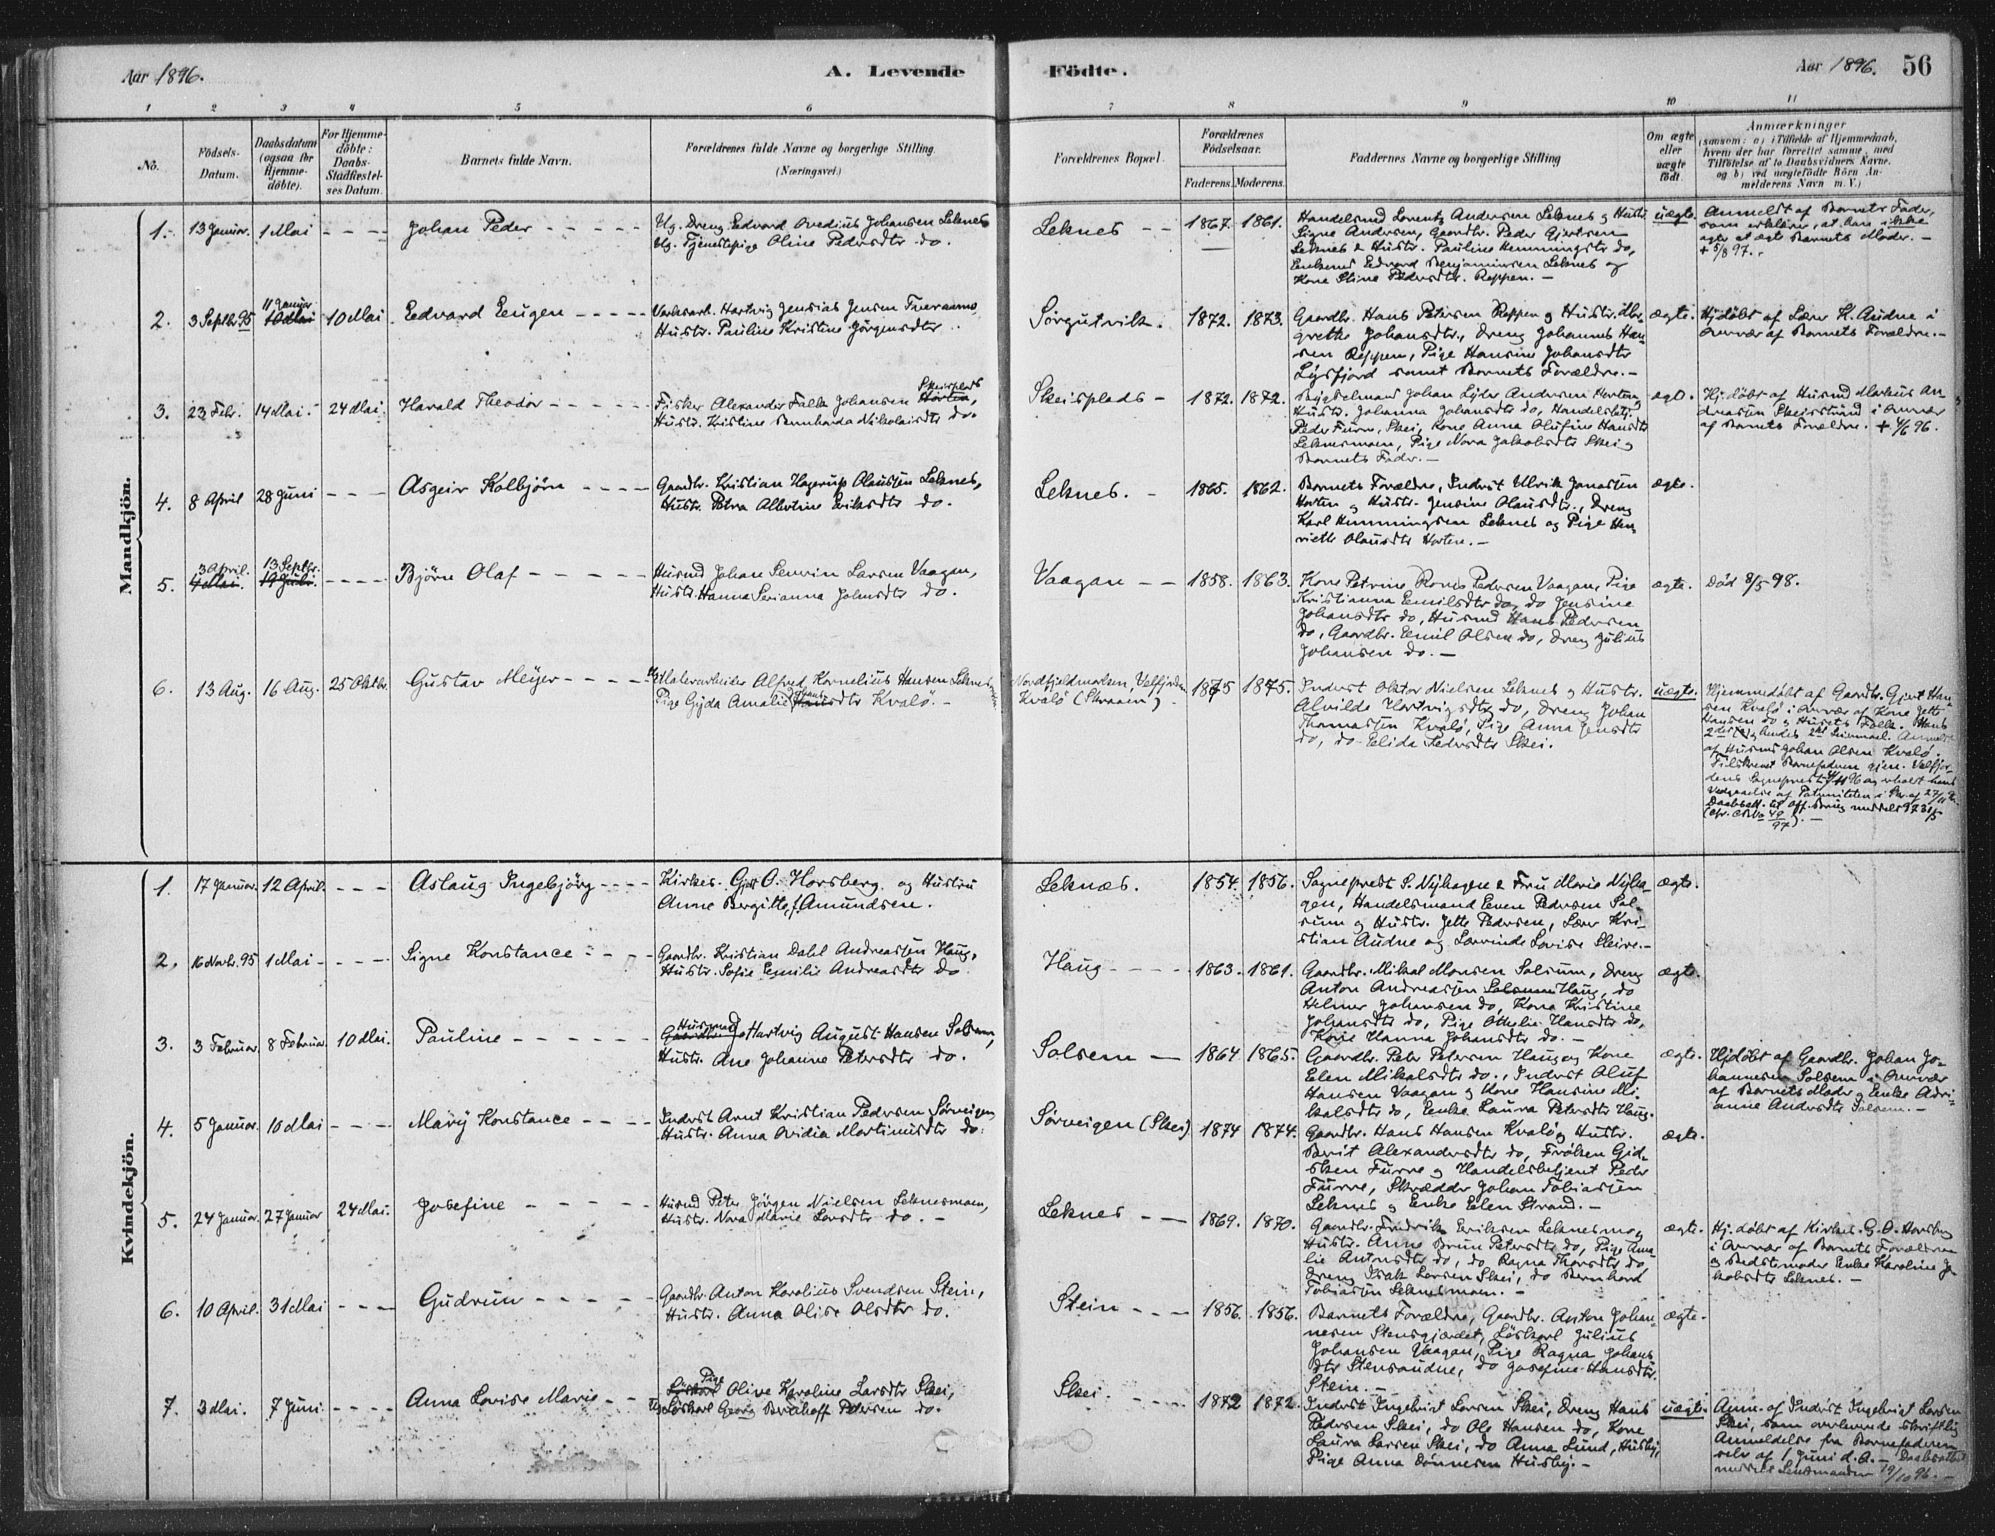 Aar 1896.
A. Levende
Födte.
Aar 1896.
56
1 2 3 4 5 6 7 8 9 10 11
No.
Födsels-Datum.
Daabsdatum (ogsaa for Hjemme-döbte).
For Hjemme-döbte: Daabs-Stadfæstel-ses Datum.
Barnets fulde Navn.
Forældrenes fulde Navne og borgerlige Stilling (Næringsvei.)
Forældrenes Bopæl.
Forældrenes Födselsaar.
Faderens. Moderens.
Faddernes Navne og borgerlige Stilling
Om ægte eller uægte födt.
Anmærkninger
(saasom: a) i Tilfælde af Hjemmedaab,
hvem der har forrettet samme, med
Tilföielse af to Daabsvidners Navne,
og b) ved uægtefödte Börn An-
melderens Navn m. V.)
Mandkjön.
1. 13 Januar. 1 Mai Johan Peder
Ug. Dreng Edvard Ovedius Johansen Leknes
Ug. Tjenestepige Oline Pedersdtr do.
Leknes 1867. 1861.
Handelsmd Lorentz Andersen Leknes og Hustr.
Signe Andersen, Gaardbr. Peder Gjertsen
Leknes & Hustr. Pauline Hemmingsdtr do,
Enkemd Edvard Benjaminsen Leknes og
Kone Stine Pedersdtr. Reppen.
uægte.
Anmeldt af Barnets Fader,
som erklærer, at han ikke
agter at ægte Barnets Moder.
+ 5/8 97.
2. 3 Septbr 95 11 Januar 10 Mai 10 Mai Edvard Eugen
Hartvig Jensias Jensen
Hustr. Pauline Kristine Jörgensdtr
Sörgutvik. 1872. 1873.
Gaardbr. Hans Petersen Reppen og Hustr.
grethe Johansdtr., Dreng Johannes Han-
sen Reppen, Pige Hansine Johansdtr
Lysfjord samt Barnets Forældre.
ægte.
Hj.döbt af Lærer K. Audne i
Overvær af Barnets Forældre.
3. 23 Febr. 14 Mai. 24 Mai. Harald Theodor
Skeisplads
Fisker Alexander Falk Johansen Horten,
Hustr. Kristine Bernharda Nikolaisdtr do.
Skeisplads 1872. 1872.
Johan Andersen Horten,
Hustr. Johanna Johansdtr do, Handelsbetj.
Peder Furre, Skei, Kone Anna Olufine Hansdtr
Leknesmoen, Pige Nora Jakobsdtr Skei og
Barnets Fader.
ægte.
Hj.döbt af Husmd Markus An-
dreassen Skeisstrand i Overvær
af Barnets Forældre. + 4/6 96.
4. 8 April 28 Juni Asgeir Kolbjörn
Gaardbr. Kristian Hagerup Olaussen Leknes,
Hustr. Petra Albertine Eriksdtr do.
Leknes. 1865. 1862.
Barnets Forældre, Inderst Ulrik Jonassen
Horten og Hustr. Jensine Olausdtr., Dreng
Karl Hemmingsen Leknes og Pige Hen-
riette Olausdtr Horten.
ægte.
5. 3 April. 4 Mai. 13 Septbr. 19 Juli. Björn Olaf
Husmd Johan Severin Larsen Vaagan,
Hustr. Hanna Serianna Johnsdtr do.
Vaagan 1858. 1863.
Kone Petrine Pedersen Vaagan, Pige
Kristianna Emilsdtr do, do Jensine
Johansdtr do, Husmd Hans Pedersen
do, Gaardbr. Emil Olsen do, Dreng Julius
Johansen do.
ægte.
Död 8/5 98.
6. 13 Aug. 16 Aug. 25 Oktbr. Gustav Meyer
Malerarbeider Alfred Kornelius Hansen Leknes
Pige Gyda Amalie Johansdtr Kvalö.
Nordfjeldmarken, Velfjorden
Kvalö (Skraaen). 1875 1875.
Inderst Oktor Nielsen Leknes og Hustr.
Alvilde Hartvigsdtr do, Dreng Johan
Thomassen Kvalö, Pige Anna Jensdtr
do, do Elida Pedersdtr Skei.
uægte.
Hjemmedöbt af Gaardbr. Gjert Han-
sen Kvalö i Overvær af Kone Jette
Hansen do og Husets Folk. Hans
2den og hendes 2det Leiermaal. Anmeldt
af Husmd Johan Olsen Kvalö.
Tilskrevet Barnefaderen gjen. Velfjor-
dens Sogneprest 4/11 96 og erholdt hans
Vedgaaelse af Paterniteten i Skr. af 27/11 96.
Kvindekjön.
1. 17 Januar. 12 April. Aslaug Ingebjörg
Kirkes. G. O. Horsberg og Hustru
Anne Bergitte, f. Amundsen.
Leknæs. 1854. 1856.
Sogneprest S. Nyhagen & Fru Marie Nyha-
gen, Handelsmand Even Pedersen Sol-
sum og Hustr. Jette Pedersen, Lærer Kri-
stian Audne og Lærerinde Lovise Skeire.
ægte.
2. 16 Novbr. 95 1 Mai Signe Konstance
Gaardbr. Kristian Dahl Andreassen Haug,
Hustr. Sofie Emilie Andreasdtr do.
Haug 1863. 1861.
Gaardbr. Mikal Monsen Solsum, Dreng
Anton Andreassen Solsum Haug, do
Helmer Johansen do, Kone Kristine
Johansdtr do, Pige Othelie Hansdtr do,
Kone Hanna Johansdtr do.
ægte.
3. 3 Februar. 8 Februar 10 Mai. Pauline
Husmand
Gaardbr. Hartvig August Hansen Solsem,
Hustr. Ane Johanne Petersdtr do.
Solsem 1864. 1865.
Gaardbr. Peter Petersen Haug og Kone
Elen Mikalsdtr do., Inderst Oluf
Hansen Vaagan og Kone Hansine Mi-
kalsdtr do, Enke Laura Petersdtr Haug.
ægte.
Hjdöbt af Gaardbr. Johan Jo-
hannesen Solsem i Overvær
af Barnets Moder og Enke Adri-
anne Andersdtr Solsem.
4. 5 Januar. 10 Mai Mary Konstance
Inderst Arnt Kristian Pedersen Sörveigen
Hustr. Anna Ovidia Martinusdtr do.
Sörveigen (Skei) 1874 1874.
Gaardbr. Hans Hansen Kvalö og Hustr.
Berit Alexandersdtr do, Fröken Gid-
sken Furre og Handelsbetjent Peder
Furre, Skrædder Johan Tobiassen
Leknes og Enke Elen Strand.
ægte.
5. 24 Januar. 27 Januar 24 Mai. Josefine
Husmd Peter Jörgen Nielsen Leknesmoen,
Hustr. Nora Marie Larsdtr do.
Leknes 1869. 1870.
Gaardbr. Fredrik Eriksen Leknesmo og
Hustr. Anne Brun Petersdtr do, Pige Ama-
lie Antonsdtr do, do Ragna Thorsdtr do,
Dreng Isak Larsen Skei, do Bernhard
Tobiassen Leknesmoen.
ægte.
Hj.döbt af Kirkes. G. O. Horsberg
i Overvær af Barnets Forældre
og Bedstemoder Enke Karoline Ja-
kobsdtr Leknes.
6. 10 April. 31 Mai Gudrun
Gaardbr. Anton Karolius Svendsen Stein,
Hustr. Anna Olise Olsdtr do.
Stein 1856. 1856.
Barnets Forældre, Gaardbr. Anton Johan-
nesen Stensgjærdet, Löskarl Julius
Johansen Vaagan, Pige Ragna Johans-
dtr Stensaudne, do Josefine Hansdtr.
Stein.
ægte.
7. 3 Mai. 7 Juni Anna Lovise Marie
Pige
Löskarl Olive Karoline Larsdtr Skei,
Ug. Löskarl Georg Pedersen do.
Skei. 1872 1872.
Inderst Ingebrigt Larsen Skei, Dreng Hans
Pedersen Skei, do Ole Hansen do, Kone
Laura Larsen Skei, do Anna Lund, Husby,
Pige Anna Dönnesen Husby.
uægte.
Anm. af Inderst Ingebrigt Larsen
Skei, som overleverede skriftlig
Anmeldelse fra Barnefaderen
selv af 1 Juni d.A. Daabsattest
meddelt Lensmanden 19/10 96.